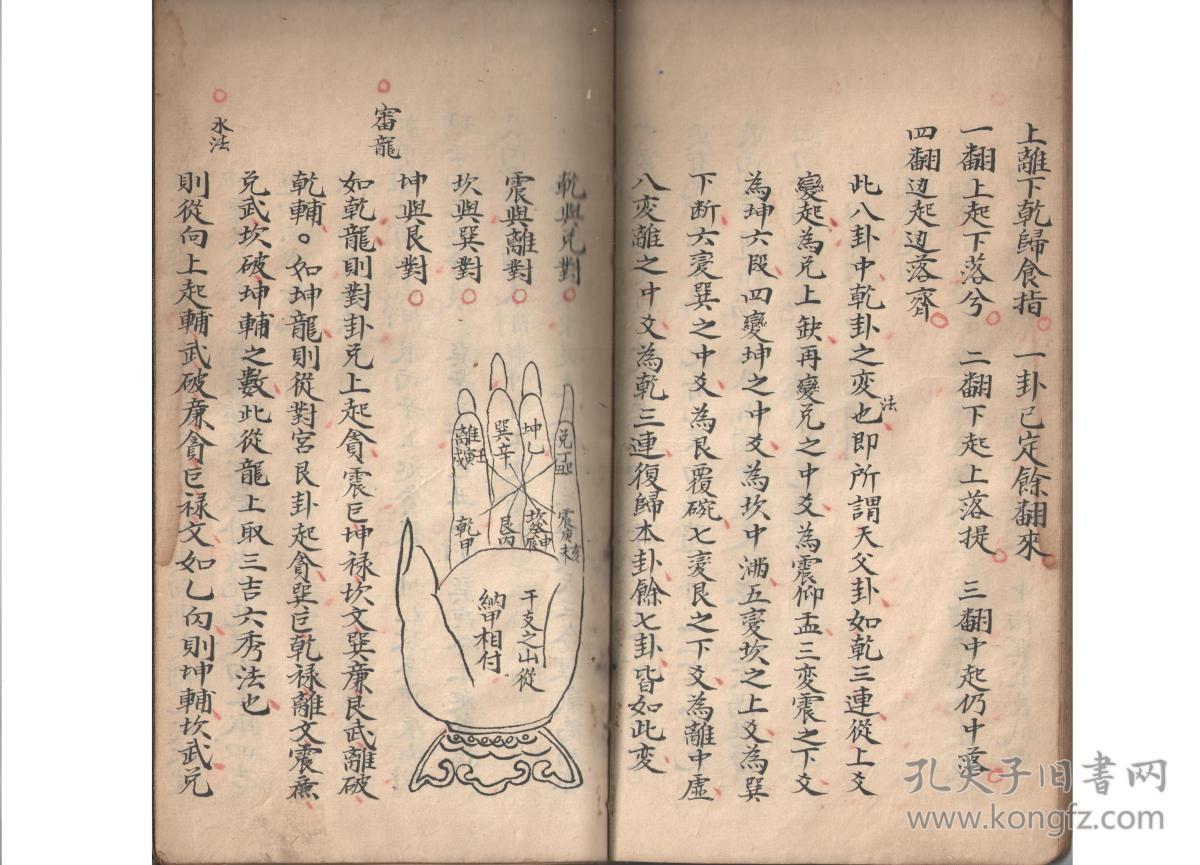 上離下乾歸食指 一卦已定餘翻來
一翻上起下落兮 二翻下起上落提 三翻中起仍中落
四翻边起边落齊
此八卦中乾卦之变法也即所謂天父卦如乾三連從上爻
變起為兑上缺再變兑之中爻為震仰盂三变震之下爻
為坤六段四變坤之中爻為坎中满五變坎之上爻為巽
下断六变巽之中爻為艮覆碗七变艮之下爻為離中虛
八变離之中爻為乾三連復歸本卦餘七卦皆如此变
乾與兑對
震與離對
坎與巽對
坤與艮對
審龍
如乾龍則對卦兑上起貪震巨坤禄坎文巽廉艮武離破
乾輔。如坤龍則從對宮艮卦起貪巽巨乾禄離文震廉
兑武坎破坤輔之數此從龍上取三吉六秀法也
水法
則從向上起輔武破廉貪巨禄文如乙向則坤輔坎武兑
兑丁巳丑
坤乙
巽辛
離壬寅戌
震庚亥未
坎癸申辰
艮丙
乾甲
干支之山從
納甲相付
孔夫子旧書网
www.kongfz.com